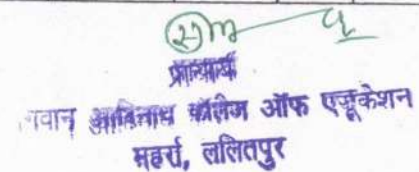 प्राचार्य
गवान आदिनाथ कॉलेज ऑफ एजूकेशन
महर्रा, ललितपुर